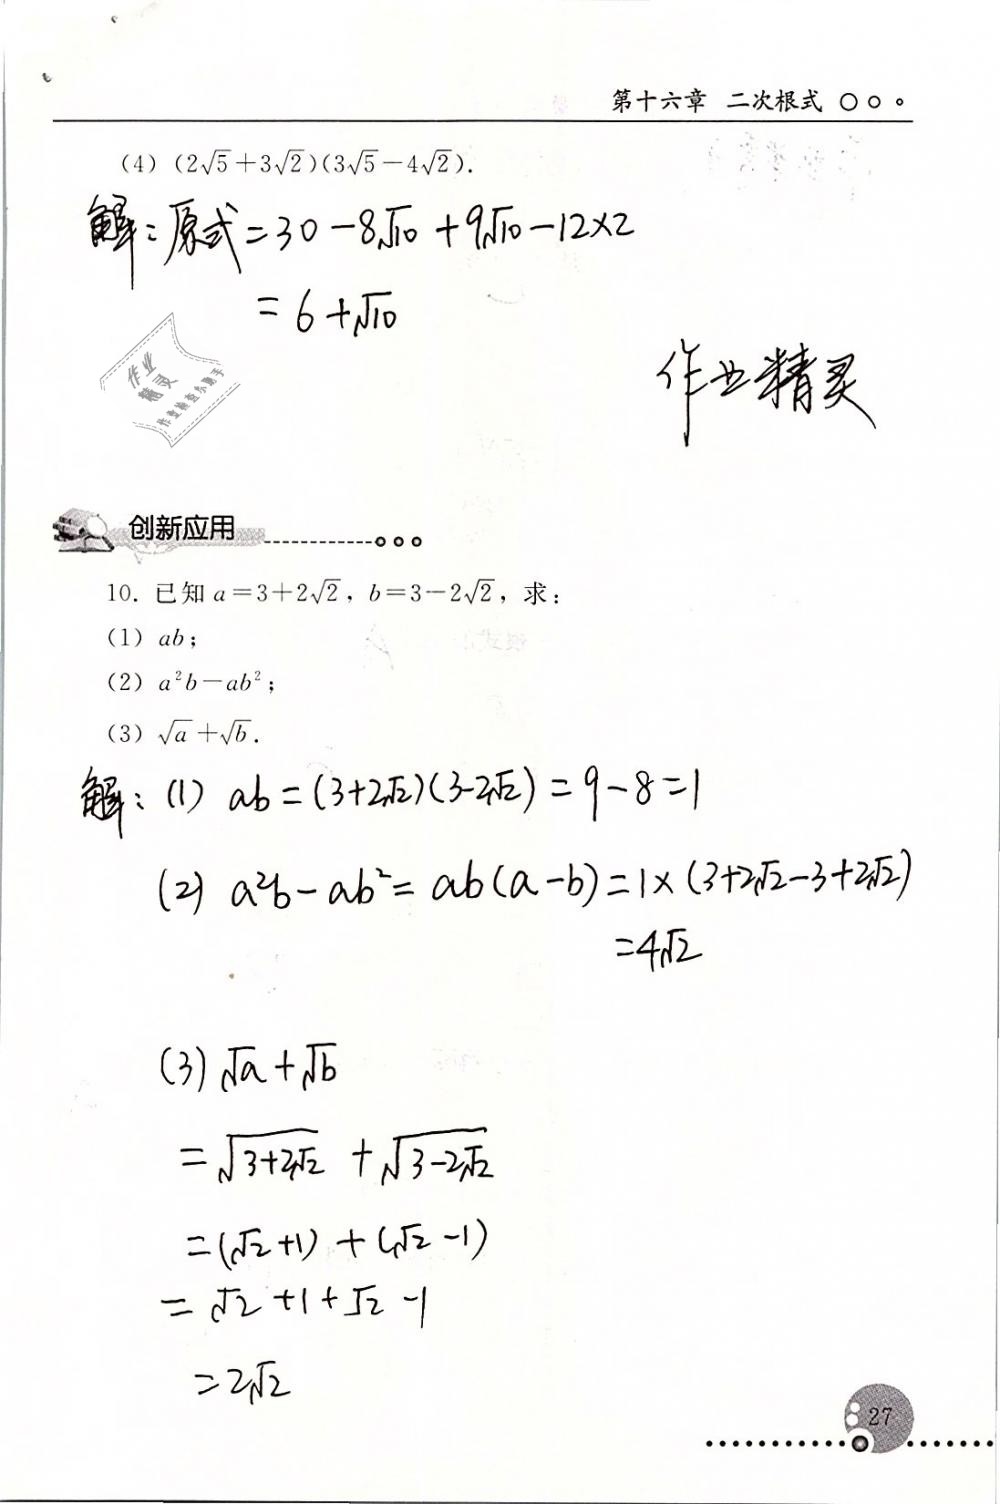 第十六章 二次根式
(4) (2√5+3√2)(3√5-4√2).
解：原式=30-8√10+9√10-12×2
=6+√10
作业
精灵
作业检查小助手
作业精灵
创新应用
10. 已知 a=3+2√2, b=3-2√2, 求:
(1) ab;
(2) a²b-ab²;
(3) √a+√b.
解：(1) ab=(3+2√2)(3-2√2)=9-8=1
(2) a²b-ab²=ab(a-b)=1×(3+2√2-3+2√2)
=4√2
(3) √a+√b
=√(3+2√2)+√(3-2√2)
=(√2+1)+(√2-1)
=√2+1+√2-1
=2√2
27